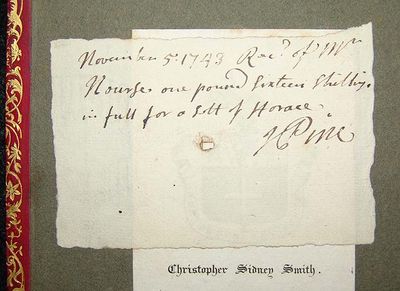 November 5. 1743 Rec.d of Mr
Nourse one pound Sixteen Shilling.
in full for a Sett of Horace.
J Pine
Christopher Sidney Smith.